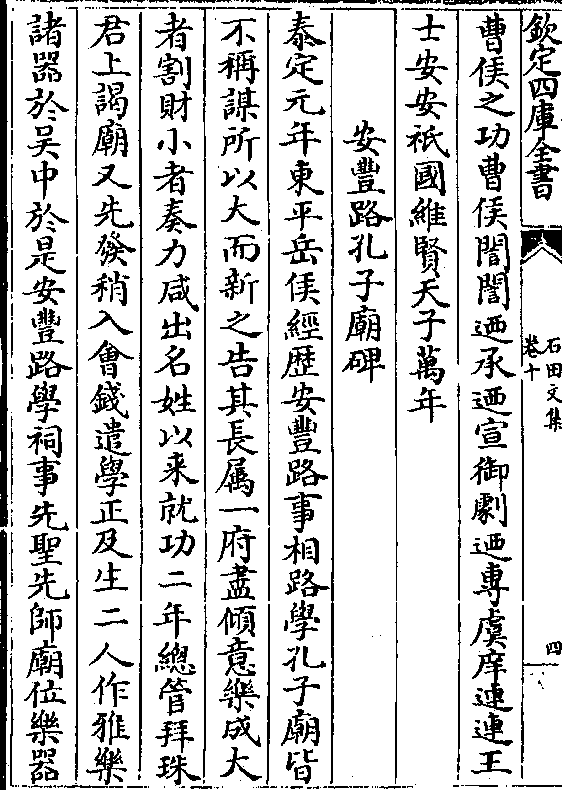 欽定四庫全書
石田文集
卷十
四
曹侯之功曹侯誾誾迺承迺宣御劇迺專虞庠連連王
士安安祇國維賢天子萬年
安豐路孔子廟碑
泰定元年東平岳侯經歴安豐路事相路學孔子廟皆
不稱謀所以大而新之告其長属一府盡傾意樂成大
者割財小者奏力咸出名姓以来就功二年總管拜珠
君上謁廟又先發稍入會錢遣學正及生二人作雅樂
諸器於吴中於是安豐路學祠事先聖先師廟位樂器